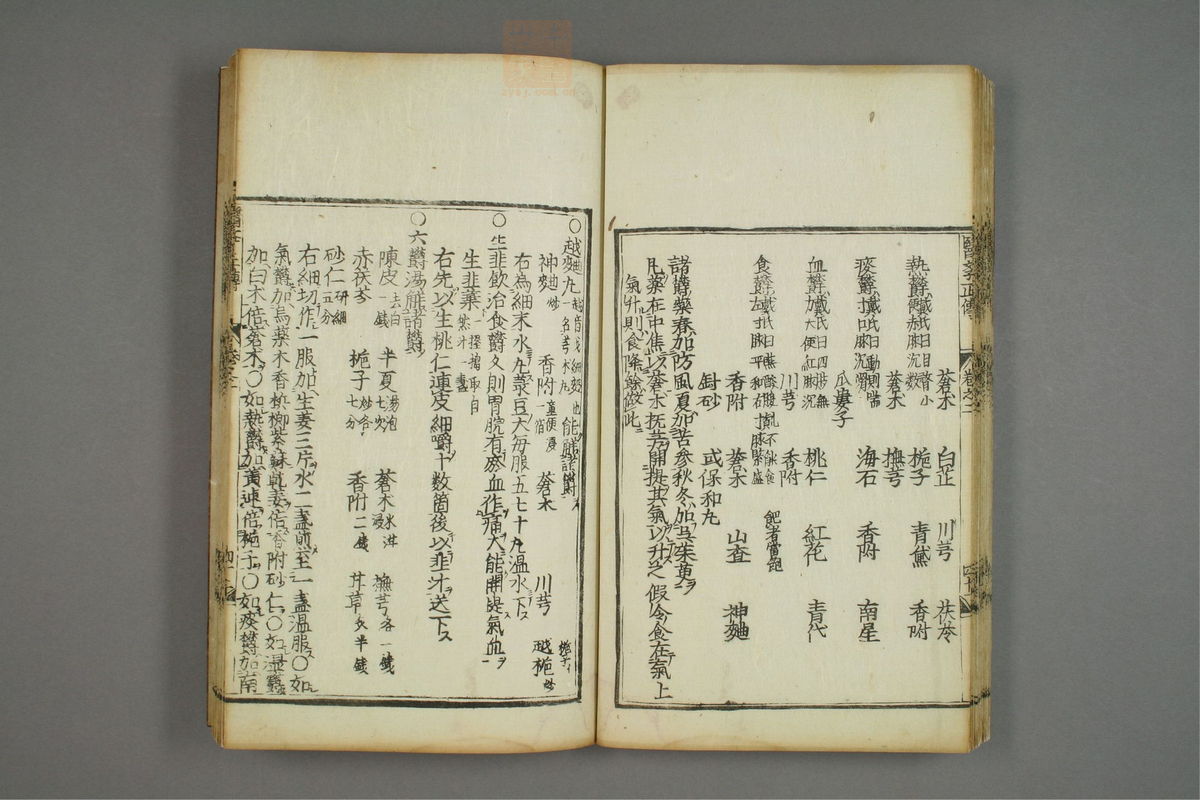 蒼朮 白芷 川芎 茯苓
熱鬱 戴氏曰目瞀小便赤脉沉數 梔子 青黛 香附
蒼朮 撫芎
痰鬱 戴氏曰動則喘寸口脉沉滑 海石 香附 南星
瓜蔞子
血鬱 戴氏曰四肢無力大便紅脉沉 桃仁 紅花 青代
川芎 香附
食鬱 戴氏曰噯酸腹飽不能食左脉平和右寸脉緊盛
香附 蒼朮 山查 神麯
針砂 或保和丸
諸鬱藥春加防風夏加苦參秋冬加吳茱萸
凡藥在中焦以蒼朮撫芎開提其氣以升之假令食在氣上
氣升則食降餘倣此
○越麯丸 一名芎朮丸 能解諸鬱
神麯炒 香附童便浸一宿 蒼朮 川芎 越梔炒
右為細末水丸菉豆大每服五七十丸溫水下
○生韭飲治食鬱久則胃脘有瘀血作痛大能開提氣血
生韭葉 桃仁連皮
右先以生桃仁連皮細嚼十數箇後以韭汁送下
○六鬱湯解諸鬱
陳皮去白一錢 半夏湯泡七次 蒼朮米泔浸 撫芎各一錢
赤茯苓 梔子炒各七分 香附二錢 甘草炙半錢
砂仁研細五分
右細切作一服加生姜三片水二盞煎至一盞溫服○如
氣鬱加烏藥木香檳榔紫蘇乾姜倍香附砂仁○如濕鬱
加白朮倍蒼朮○如熱鬱加黃連倍梔子○如痰鬱加南